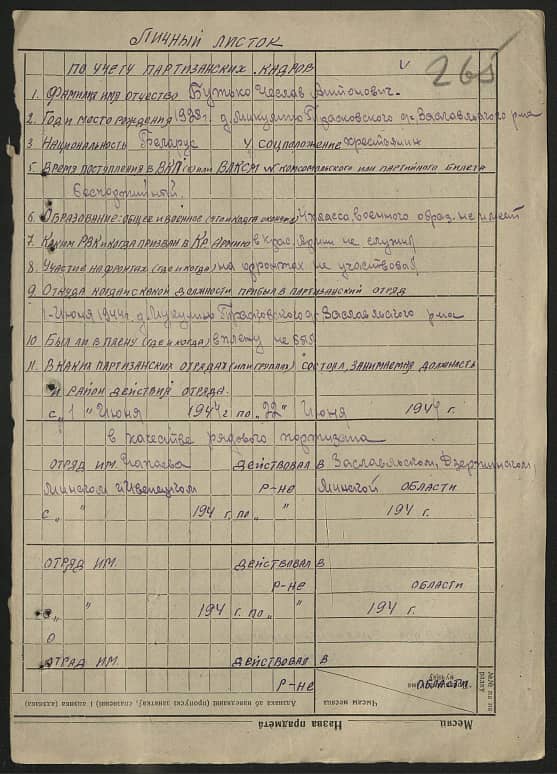 Личный листок
по учету партизанских кадров
v 265
1. Фамилия имя отчество Бутько Чеслав Антонович.
2. Год и место рождения 1929 г. д. Микулино с/с Заславльского р-на
3. Национальность Беларус 4. Соцположение крестьянин
5. Время поступления в ВКП(б) или ВЛКСМ № комсомольского или партийного билета
беспартийный
6. Образование: общее и военное (что и когда окончил) 4 класса, военного образ. не имеет
7. Каким РВК и когда призван в Кр. Армию в крас. армии не служил
8. Участие на фронтах (где и когда) на фронтах не участвовал
9. Откуда когда и с какой должности прибыл в партизанский отряд
1-Июня 1944 г. д. Микулино с/с Заславльского р-на
10. Был ли в плену (где и когда) в плену не был
11. В каких партизанских отрядах (или группах) состоял, занимаемая должность
и район действия отряда.
с „1" Июня 1944 г. по „22" Июня 1944 г.
в качестве рядового партизана
отряд им. Чапаева действовал в Заславльском, Дзержинском,
Минском и Ивенецком р-не Минской области
с „ " 194 г. по „ " 194 г.
отряд им. действовал в
р-не области
с „ " 194 г. по „ " 194 г.
О
отряд им. действовал в
р-не области
Адзнака аб наведванні (пропускі заняткаў, спазненні) і ацэнка (адзнака)
Чысло месяца
Назва прадмета
Месяц